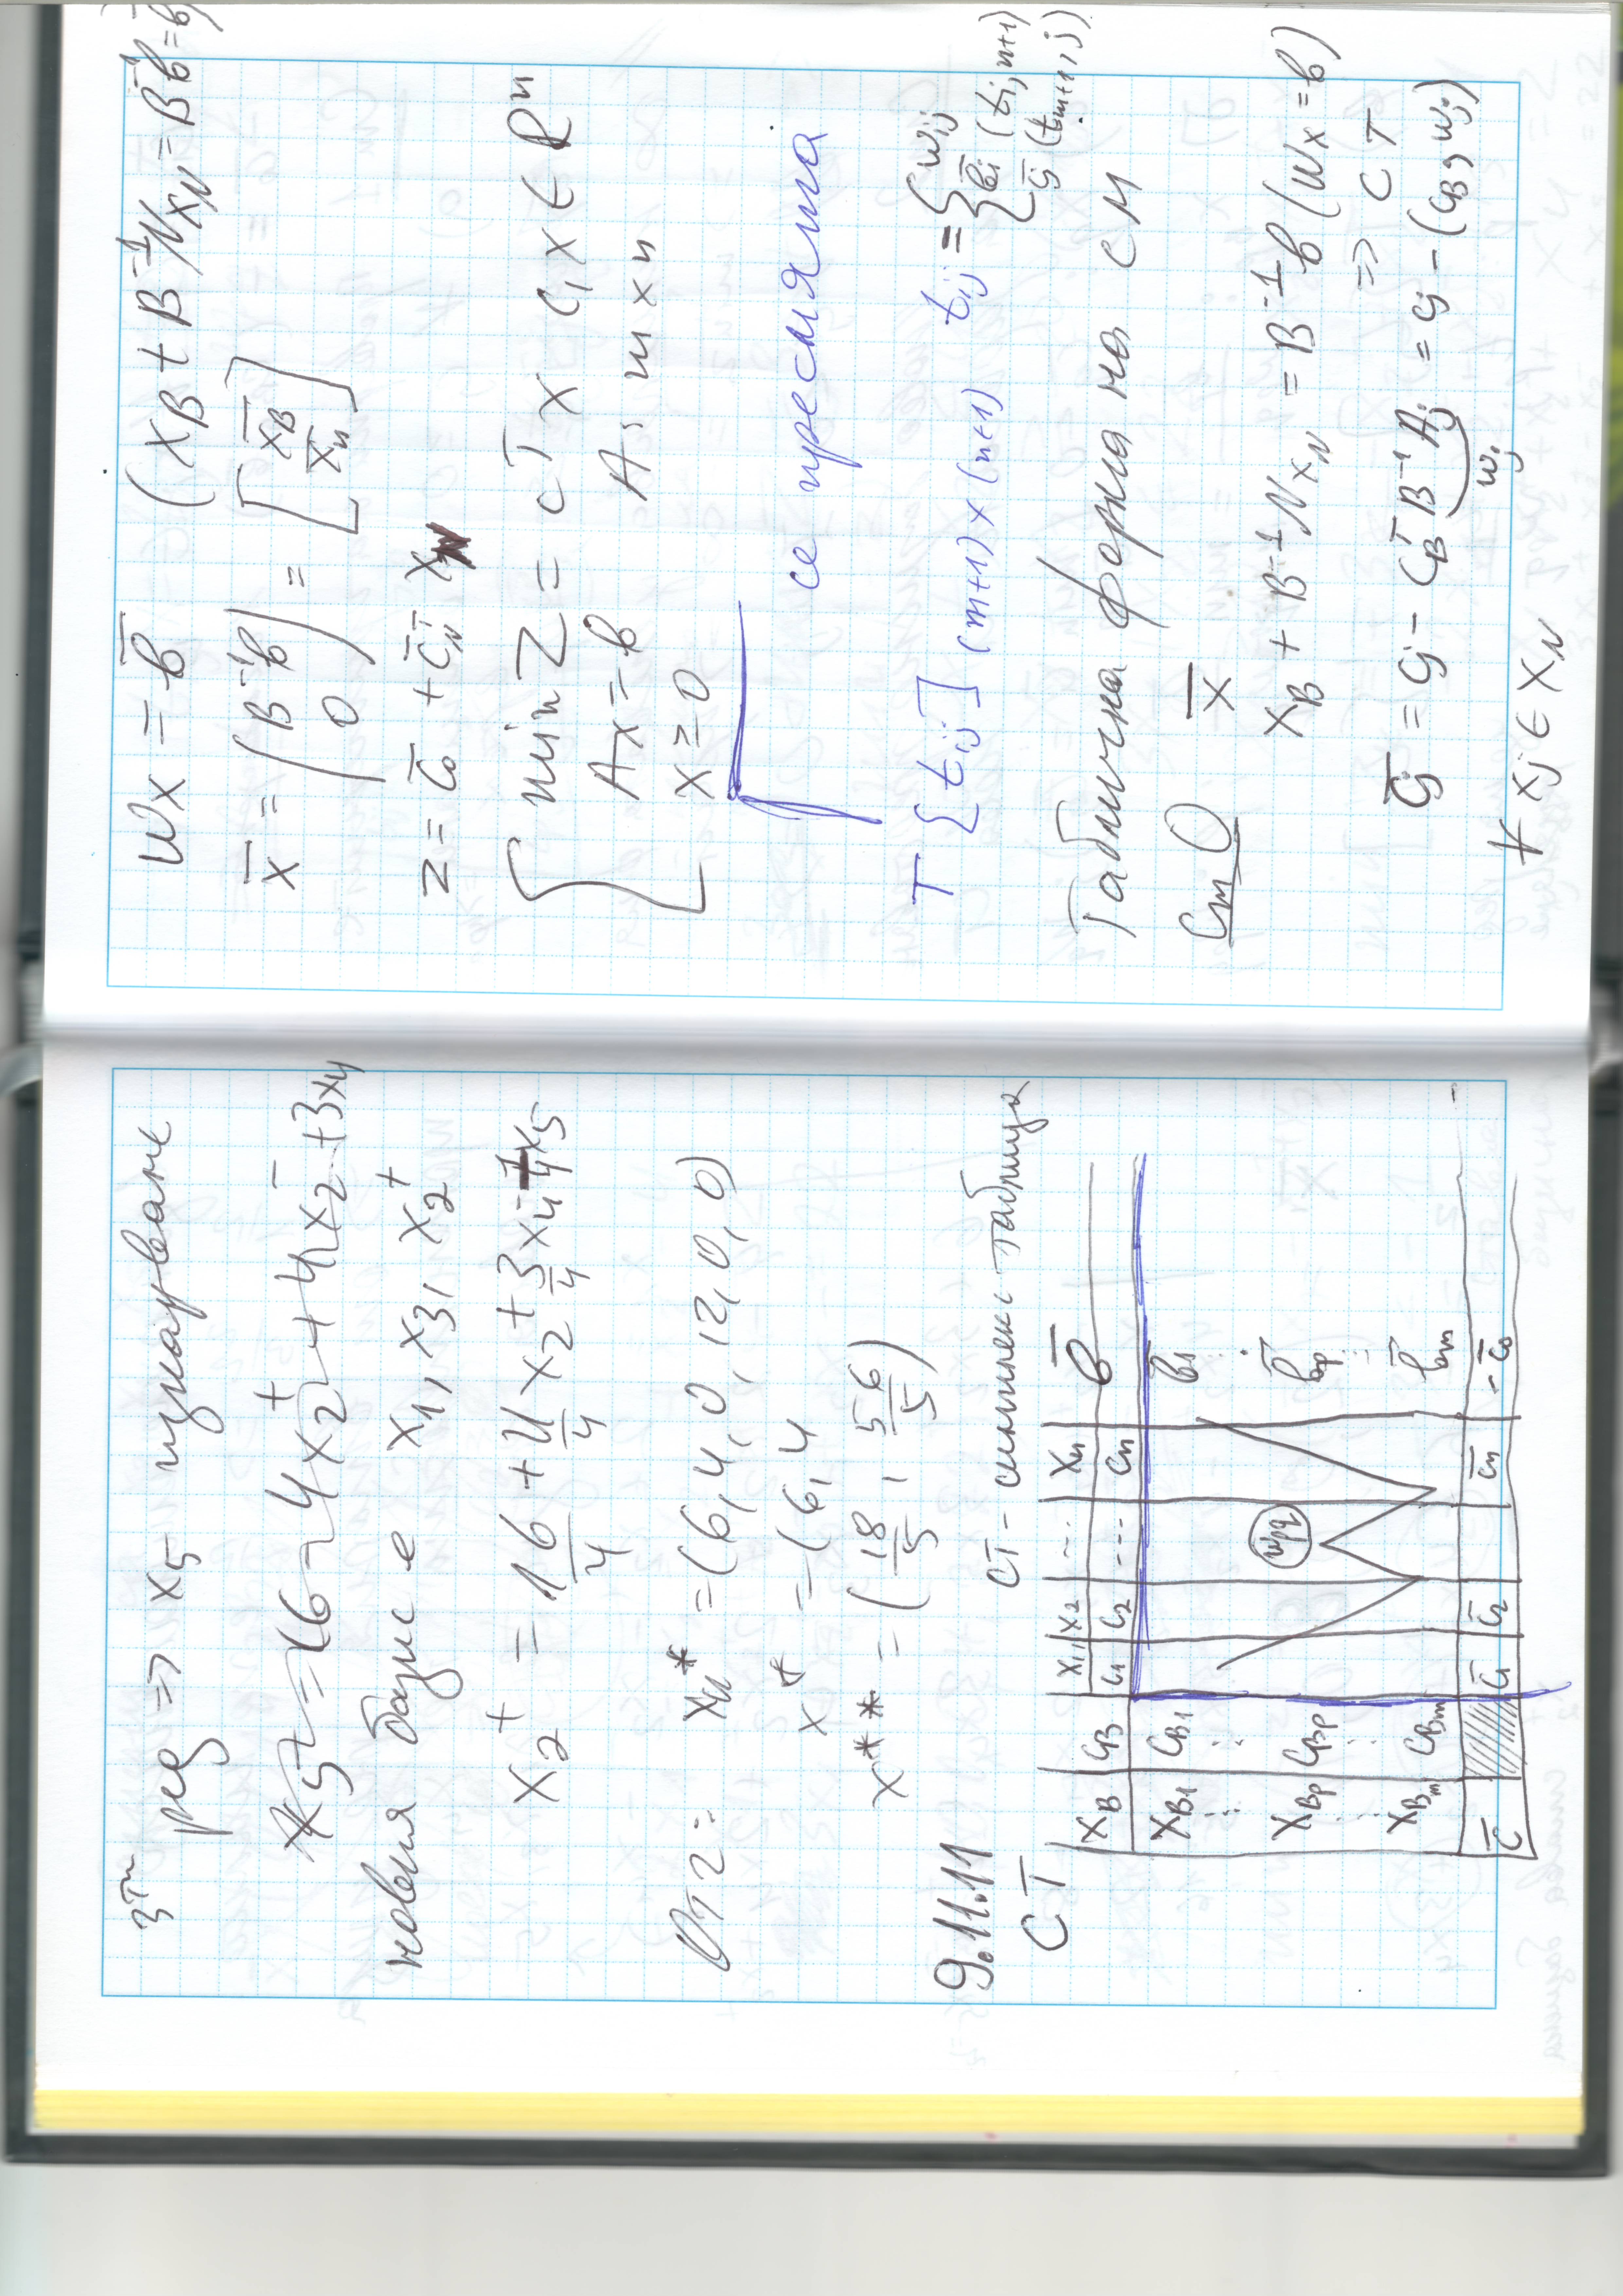 3ти
ред => x5 изкарваме
x5 = 16 - 4x2+ + 4x2- + 3x4
новия базис е x1, x3, x2+
x2+ = 16/4 + 4/4 x2- + 3/4 x4 - 1/4 x5
Отг: xк* = (6, 4, 0, 12, 0, 0)
x* = (6, 4
x** = (18/5, 56/5)
9.11.11
СТ СТ - симплекс таблица
xB cB x1 x2 ... xn b̄
c1 c2 ... cn
xB1 cB1 b̄1
xBp cBp wpq b̄p
xBm cBm b̄m
c̄ c̄1 c̄2 c̄n -c̄0
Wx = b̄ (xB + B⁻¹N xN = B⁻¹b = b̄)
x̄ = (B⁻¹b 0) = [x̄B x̄n]
z = c̄0 + c̄Nᵀ xN
min z = cᵀx c, x ∈ Rⁿ
Ax = b A: m x n
x ≥ 0
се пресмята
T {tij] (m+1) x (n+1) tij = { wij
b̄i (ti, n+1)
c̄j (tm+1, j)
Таблична форма на СМ
Cm 0 x̄
xB + B⁻¹N xN = B⁻¹b (Wx = b̄)
=> СТ
c̄j = cj - cBᵀ B⁻¹ Aj = cj - (cB, wj)
wj
∀ xj ∈ xN